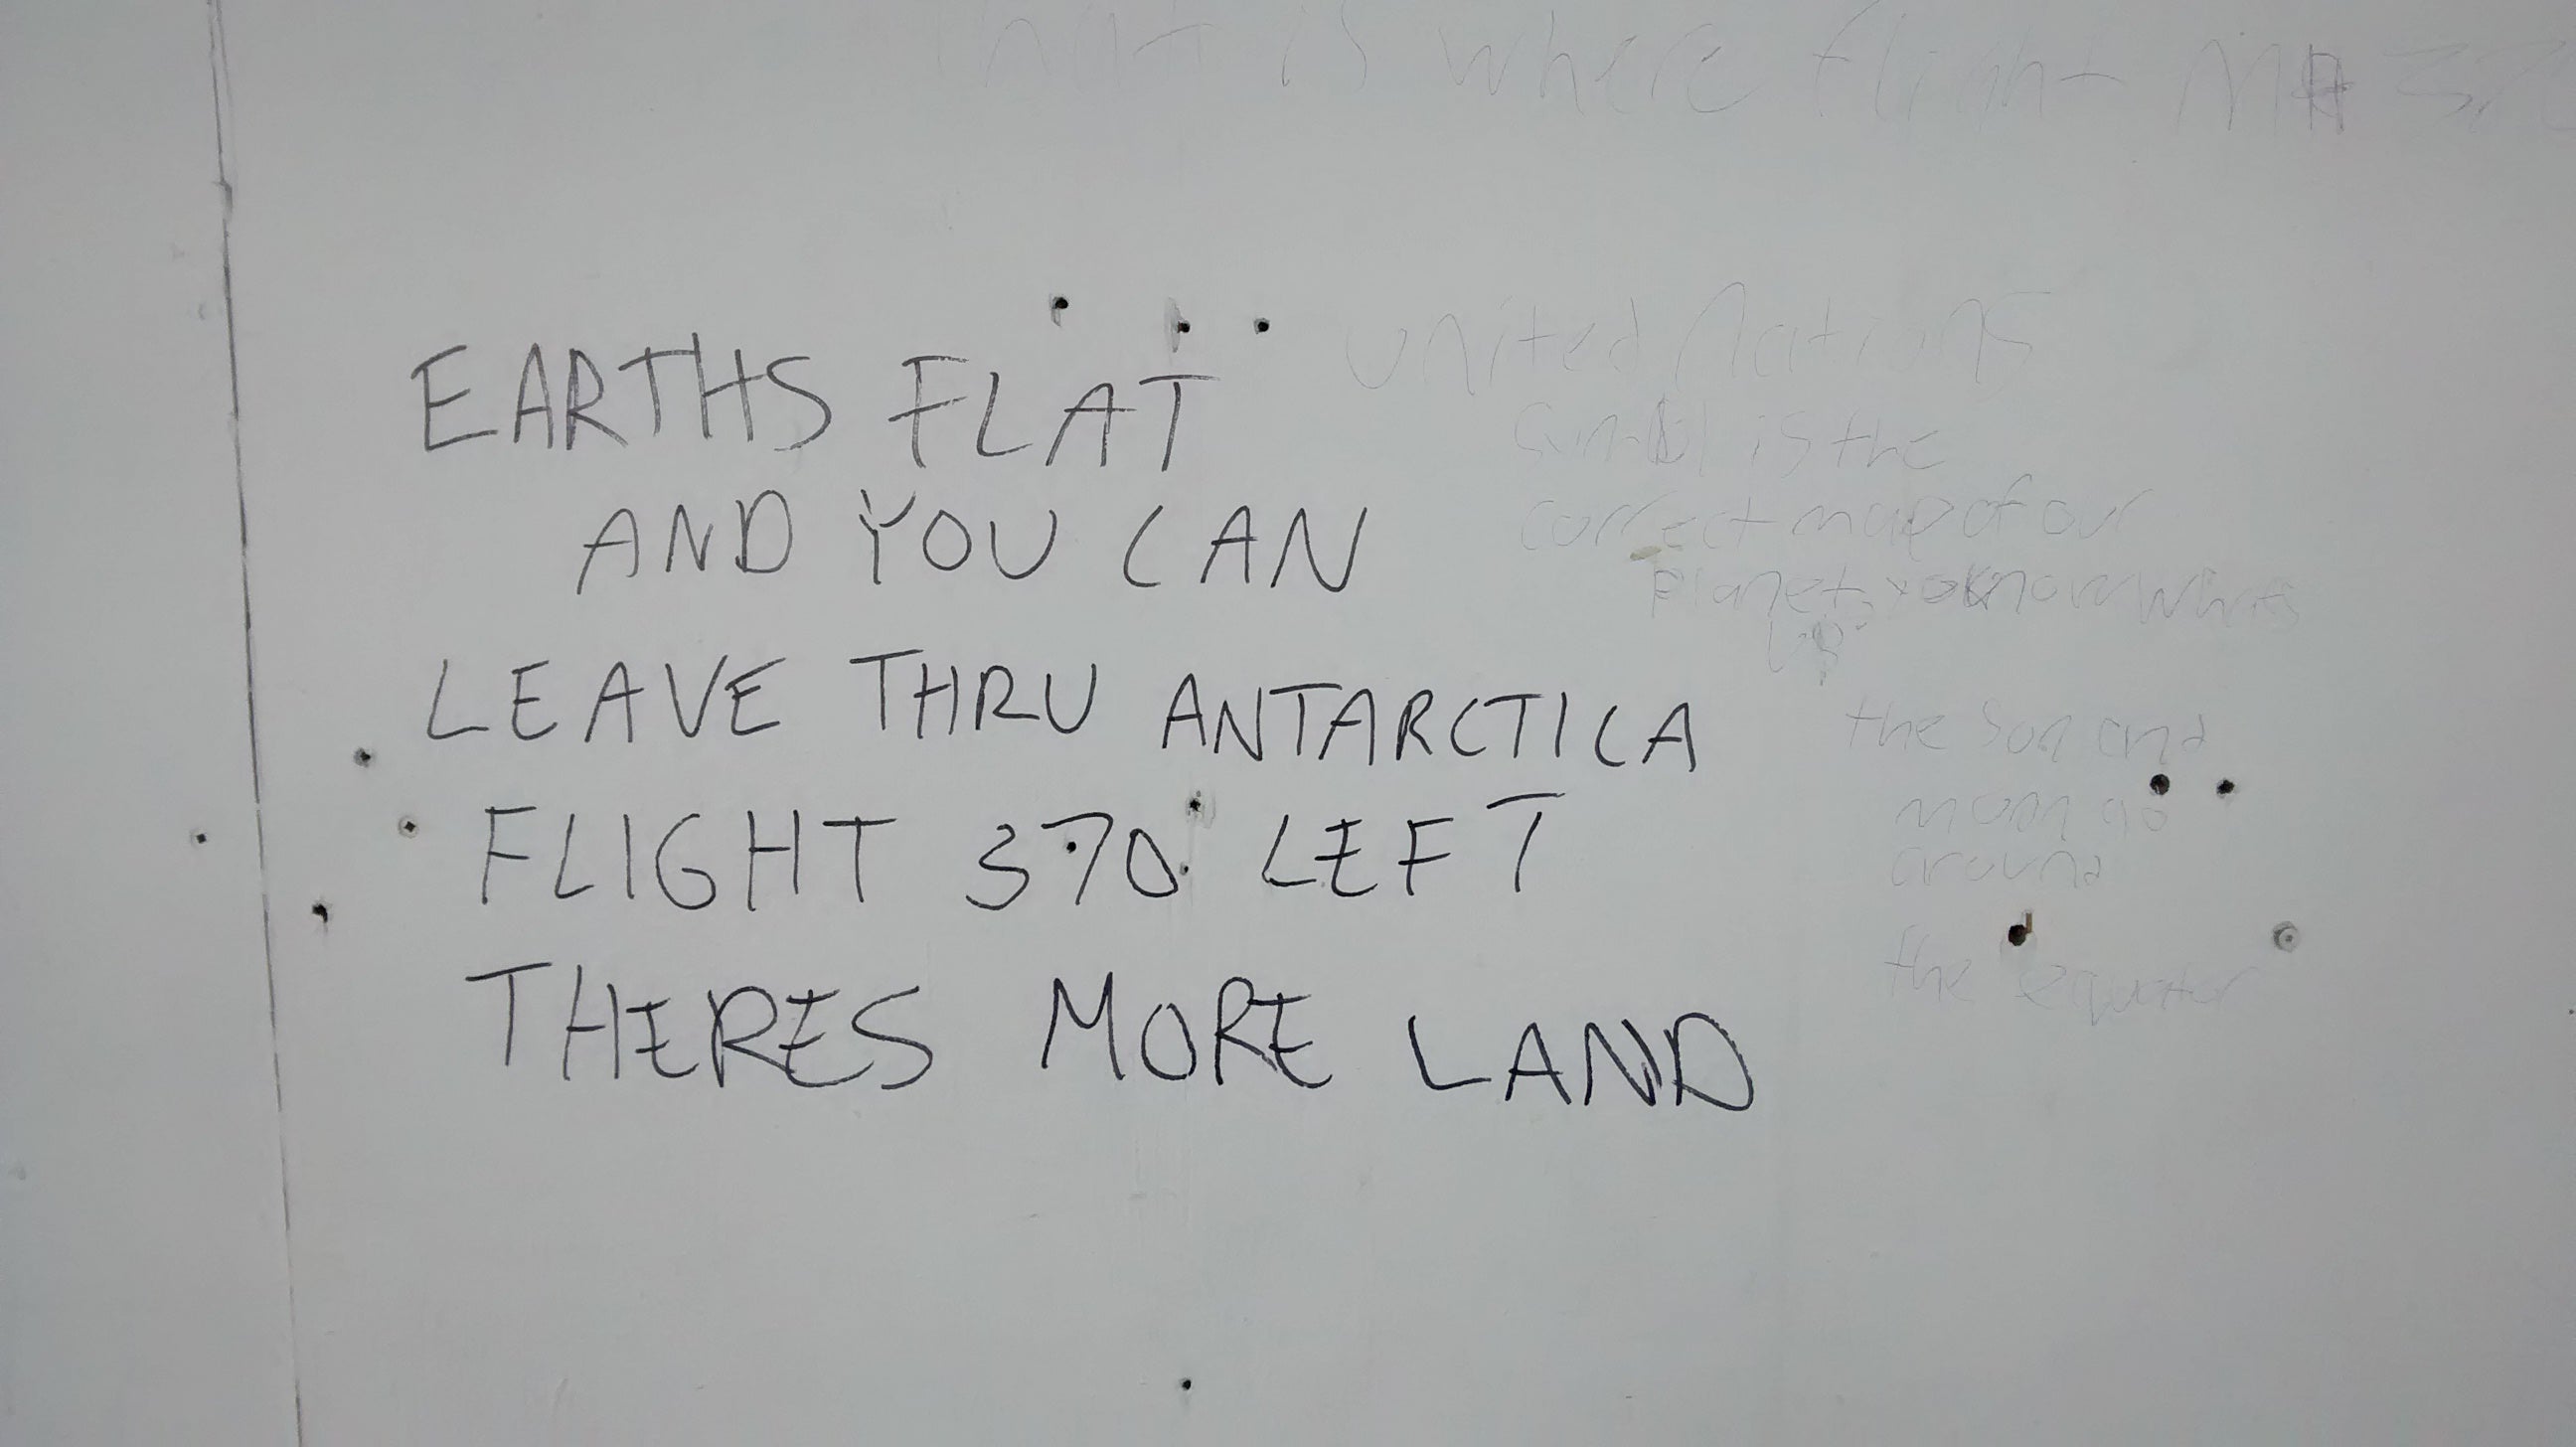 that is where flight MH 370
EARTHS FLAT
AND YOU CAN
LEAVE THRU ANTARCTICA
FLIGHT 370 LEFT
THERES MORE LAND
United Nations
is the
correct map of our
planet, know whats
up
the sun and
moon go
around
the equator